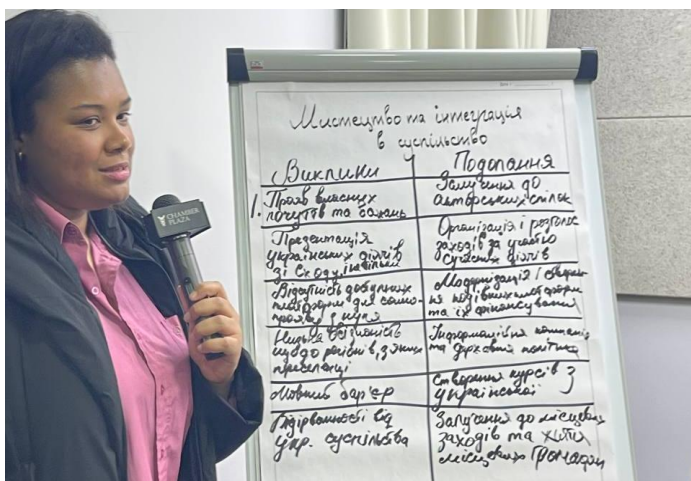 Мистецтво та інтеграція
в суспільство
Виклики
Подолання
1. Прояв власних
почуттів та бажань
Залучення до
авторських спілок
Презентація
українських діячів
зі Сходу
Організація і розголос
заходів за участю
сучасних діячів
Відсутність доступних
платформ для само-
прояву з нуля
Модернізація і створен-
ня подібних платформ
та їх фінансування
Низька обізнаність
щодо регіонів, з яких
переселенці
Інформаційна компанія
та державна політика
Мовний бар'єр
Створення курсів з
української
Відірванності від
укр. суспільства
Залучення до місцевих
заходів та життя
місцевих громади
CHAMBER
PLAZA